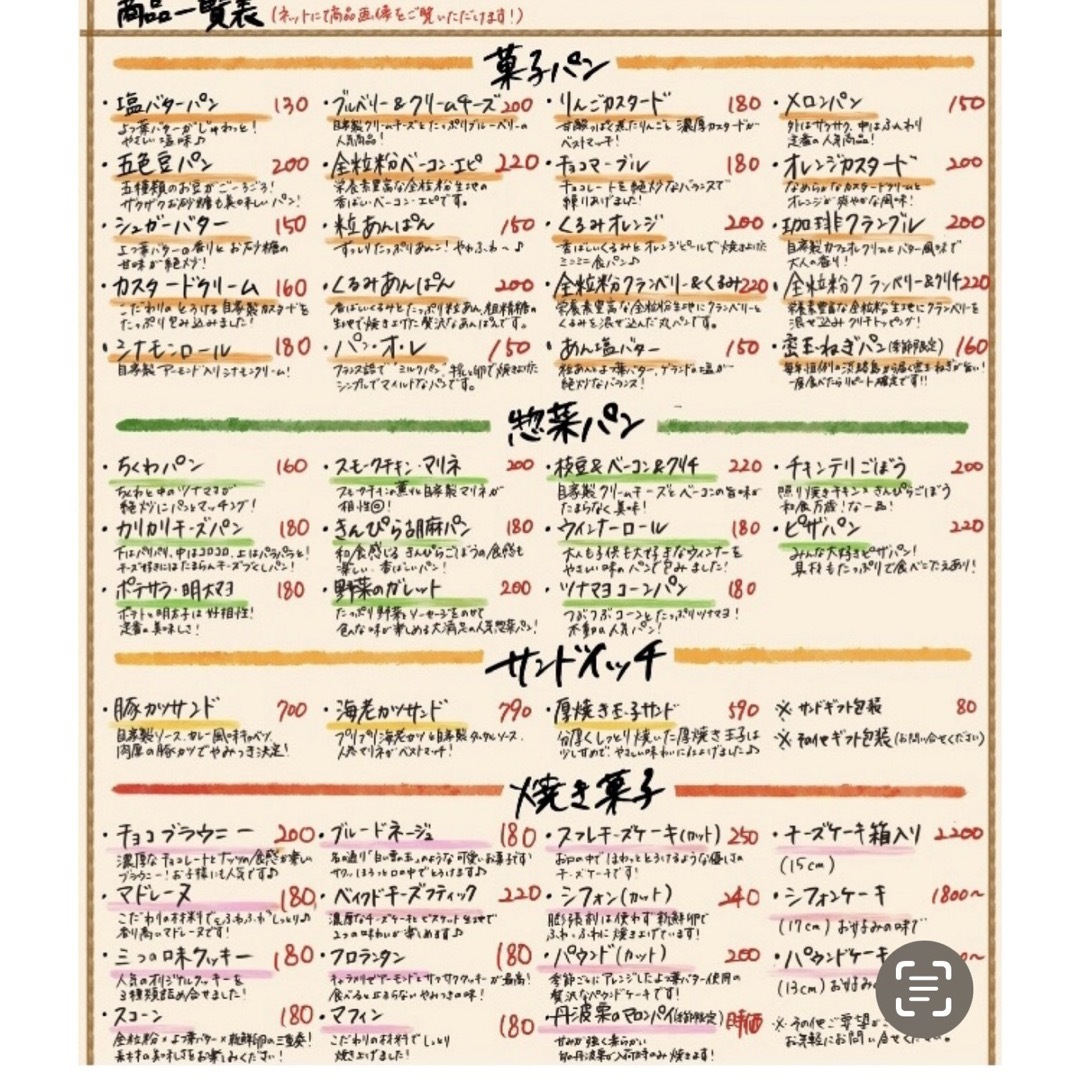 商品一覧表 (ネットにて商品画像をご覧いただけます!)
菓子パン
・塩バターパン 130
よつ葉バターがじゅわっと!
やさしい塩味♪
・ブルベリー&クリームチーズ 200
自家製クリームチーズとたっぷりブルーベリーの
人気商品!
・りんごカスタード 180
甘酸っぱく煮たりんごと濃厚カスタードが
ベストマッチ!
・メロンパン 150
外はサクサク、中はふんわり
定番の人気商品!
・五色豆パン 200
五種類のお豆がごーろごろ!
ザクザクお砂糖も美味しいパン!
・全粒粉ベーコン・エピ 220
栄養素豊富な全粒粉生地の
香ばしいベーコン・エピです。
・チョコマーブル 180
チョコレートを絶妙なバランスで
練りあげました!
・オレンジカスタード 200
なめらかなカスタードクリームと
オレンジが爽やかな風味!
・シュガーバター 150
よつ葉バターの香りとお砂糖の
甘味が絶妙!
・粒あんぱん 150
ずっしりたっぷりあんこ! やわふわ〜♪
・くるみオレンジ 200
香ばしいくるみとオレンジピールで焼き上げた
ミニミニ食パン♪
・珈琲クランブル 200
自家製カフェオレクリームとバター風味で
大人の香り!
・カスタードクリーム 160
こだわりのとろける自家製カスタードを
たっぷり包み込みました!
・くるみあんぱん 200
香ばしいくるみとたっぷり粒あん、粗精糖の
生地で焼き上げた贅沢なあんぱんです。
・全粒粉クランベリー&くるみ 220
栄養素豊富な全粒粉生地にクランベリーと
くるみを混ぜ込んだ丸パンです。
・全粒粉クランベリー&クリチ 220
栄養素豊富な全粒粉生地にクランベリーを
混ぜ込みクリチトッピング!
・シナモンロール 180
自家製アーモンド入りシナモンクリーム!
・パン・オ・レ 150
フランス語で"ミルクパン"、牛乳と卵で焼き上げた
シンプルでマイルドなパンです。
・あん塩バター 150
粒あんとよつ葉バター、ゲランドの塩が
絶妙なバランス!
・蜜玉ねぎパン(季節限定) 160
毎年恒例の淡路島から届く玉ねぎが旨い!
一度食べたらリピート確定です!!
惣菜パン
・ちくわパン 160
ちくわと中のツナマヨが
絶妙にパンとマッチング!
・スモークチキン・マリネ 200
スモークチキンの薫りと自家製マリネが
相性◎!
・枝豆&ベーコン&クリチ 220
自家製クリームチーズとベーコンの旨味が
たまらなく美味!
・チキンテリごぼう 200
照り焼きチキン×きんぴらごぼう
和食万歳!な一品!
・カリカリチーズパン 180
下はパリパリ、中はコロコロ、上はパラパラと!
チーズ好きにはたまらんチーズづくしパン!
・きんぴら胡麻パン 180
和食感じるきんぴらごぼうの食感も
楽しい、香ばしいパン!
・ウィンナーロール 180
大人も子供も大好きなウィンナーを
やさしい味のパンで包みました!
・ピザパン 220
みんな大好きピザパン!
具材もたっぷりで食べごたえあり!
・ポテサラ・明太マヨ 180
ポテトと明太子は好相性!
定番の美味しさ!
・野菜のガレット 200
たっぷり野菜とソーセージをのせて
色んな味が楽しめる大満足の人気惣菜パン!
・ツナマヨコーンパン 180
つぶつぶコーンとたっぷりツナマヨ!
不動の人気パン!
サンドイッチ
・豚カツサンド 700
自家製ソース、カレー風味キャベツ、
肉厚の豚カツでやみつき決定!
・海老カツサンド 790
プリプリ海老カツと自家製タルタルソース、
人参マリネがベストマッチ!
・厚焼き玉子サンド 590
分厚くしっとり焼いた厚焼き玉子は
少し甘めで、やさしい味わいに仕上げました♪
※ サンドギフト包装 80
※ その他ギフト包装(お問い合せください)
焼き菓子
・チョコブラウニー 200
濃厚なチョコレートとナッツの食感が楽しい
ブラウニー!お子様にも人気です♪
・ブールドネージュ 180
名の通り"白い雪の玉"のような可愛いお菓子です!
サクッほろっと口の中でとろけます♪
・スフレチーズケーキ(カット) 250
お口の中でほわっととろけるような優しさの
チーズケーキです!
・チーズケーキ箱入り 2200
(15cm)
・マドレーヌ 180
こだわりの材料で"ふわふわ"しっとり♪
香り高いマドレーヌです!
・ベイクドチーズスティック 220
濃厚なチーズケーキとビスケット生地で
2つの味わいが楽しめます♪
・シフォン(カット) 240
膨張剤は使わず新鮮卵で
ふわ・ふわに焼き上げています!
・シフォンケーキ 1800〜
(17cm) お好みの味で
・三つの味クッキー 180
人気のオリジナルクッキーを
3種類詰め合せました!
・フロランタン 180
キャラメリゼアーモンドとサクサククッキーが最高!
食べると止まらないやみつきの味!
・パウンド(カット) 200
季節ごとにアレンジしたよつ葉バター使用の
贅沢なパウンドケーキです!
・パウンドケーキ
(13cm) お好み
・スコーン 180
全粒粉×よつ葉バター×新鮮卵の三重奏!
素材の美味しさをお楽しみください!
・マフィン 180
こだわりの材料でしっとり
焼き上げました!
・丹波栗のマロンパイ(季節限定) 時価
甘みが強く柔らかい
旬の丹波栗が入荷時のみ焼きます!
※ その他ご要望が
お気軽にお問い合せください。